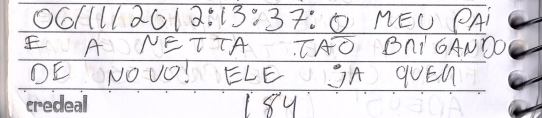 06/11/2012:13:37: O MEU PAI
E A NETTA TAO BRIGANDO
DE NOVO! ELE JA QUER
credeal 184